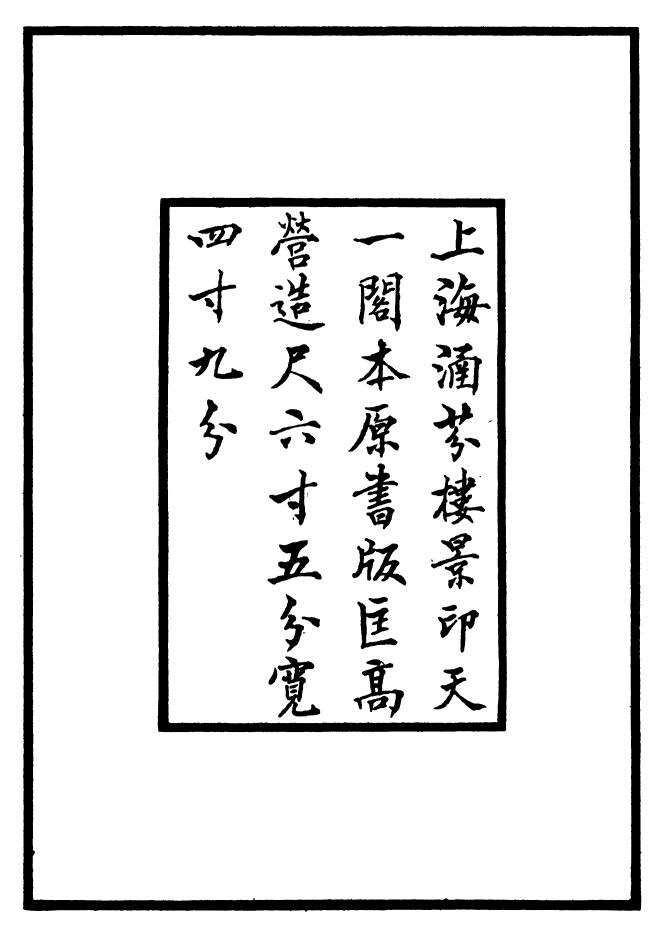 上海涵芬樓景印天
一閣本原書版匡高
營造尺六寸五分寬
四寸九分